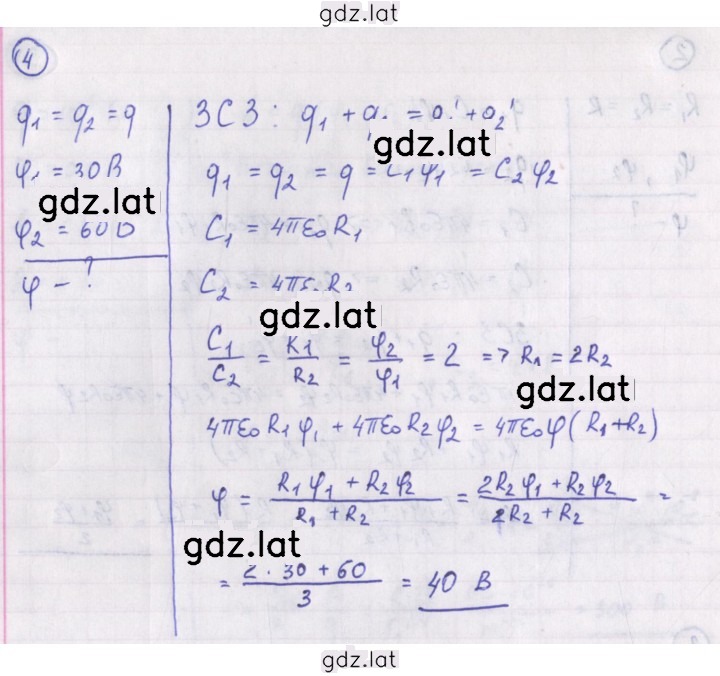 gdz.lat
4
q₁ = q₂ = q
φ₁ = 30 В
gdz.lat
φ₂ = 60 В
φ - ?
ЗСЗ: q₁ + = +
gdz.lat
q₁ = q₂ = q = C₁φ₁ = C₂φ₂
C₁ = 4πε₀R₁
C₂ = 4πε₀R₂
gdz.lat
C₁/C₂ = R₁/R₂ = φ₂/φ₁ = 2 => R₁ = 2R₂
gdz.lat
4πε₀R₁φ₁ + 4πε₀R₂φ₂ = 4πε₀φ(R₁+R₂)
φ = (R₁φ₁ + R₂φ₂)/(R₁ + R₂) = (2R₂φ₁ + R₂φ₂)/(2R₂ + R₂) =
gdz.lat
= (2 · 30 + 60)/3 = 40 В
gdz.lat